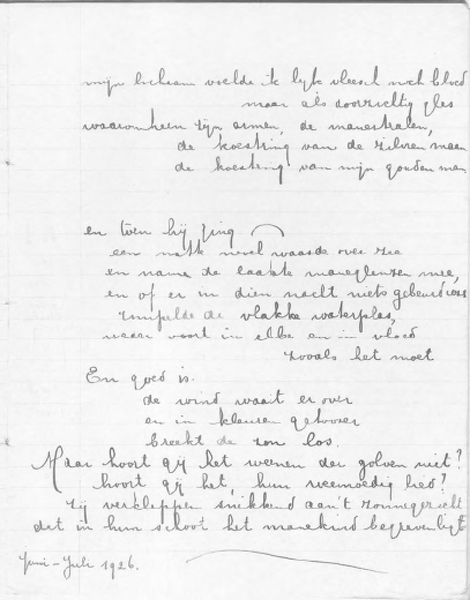 mijn lichaam voelde ik lijk vleesch noch bloed
maar als doorzichtig glas
waaromheen zijn armen, de manestralen,
de koestring van de zilvren maan
de koestring van mijn gouden man
en toen hij ging
een natte nevel waarde over zee
en name de laatste maneglanzen mee,
en of er in dien nacht niets gebeurd was
rimpelde de vlakke waterplas,
weder voort in ebbe en in vloed
zooals het moet
En goed is.
de wind waait er over
en in kleuren getoover
breekt de zon los.
Maar hoort gij het weenen der golven niet?
hoort gij het, hun weemoedig lied?
Zij verkleppen snikkend aan't zonnegezicht
dat in hun schoot het manekind begraven ligt
Juni - Juli 1926.